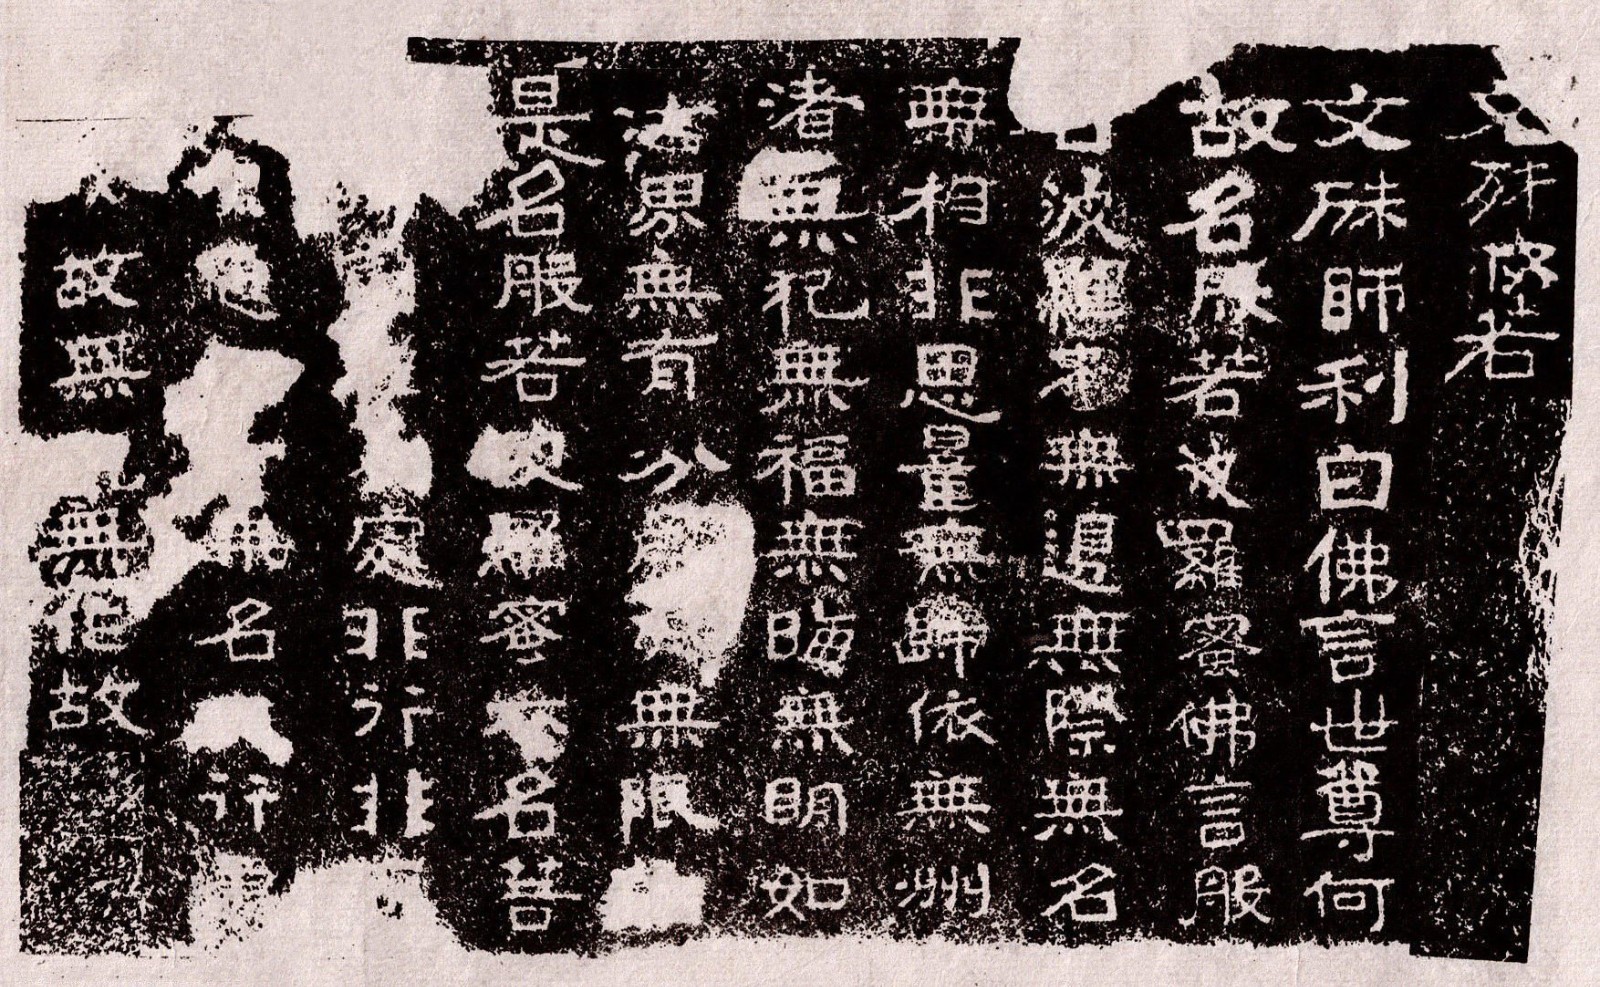 文殊般若
文殊師利白佛言世尊何
故名般若波羅蜜佛言般
波羅蜜無邊無際無名
無相非思量無歸依無洲
渚無犯無福無晦無明如
法界無有分齊無限
是名般若波羅蜜亦名菩
處非行非
無名行
故無無作故